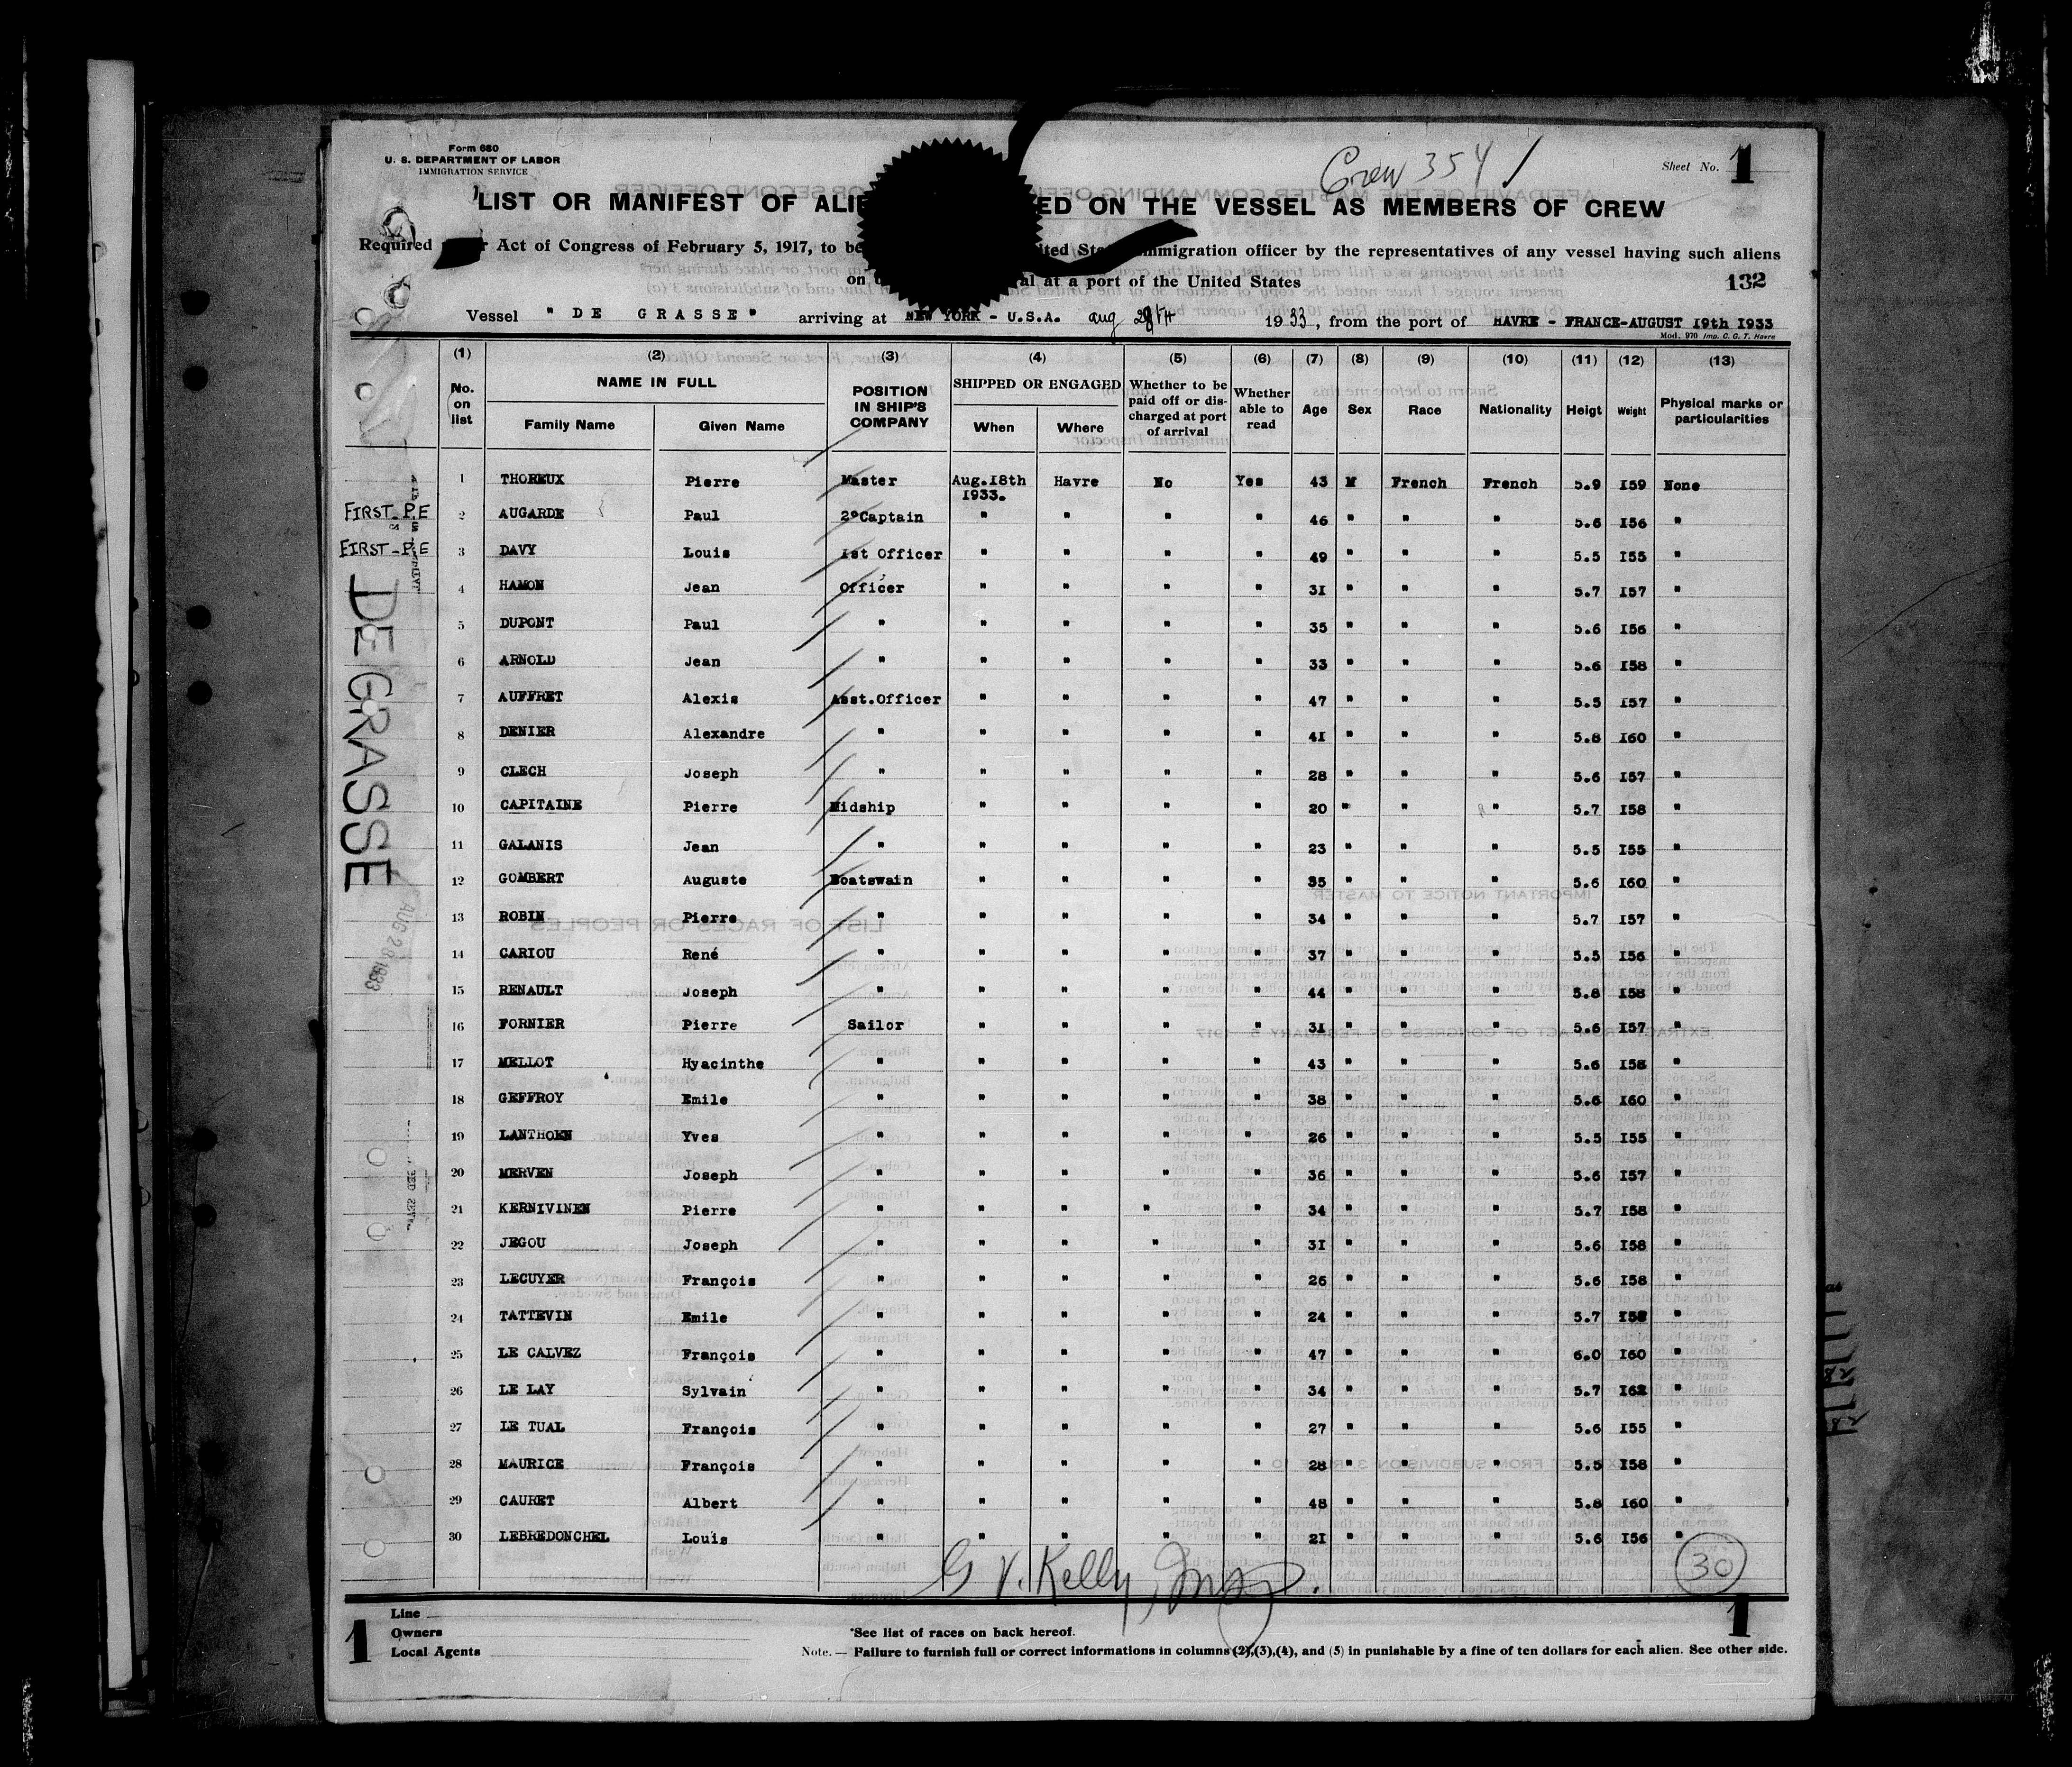 Form 680
U. S. DEPARTMENT OF LABOR
IMMIGRATION SERVICE
Crew 354
Sheet No. 1
LIST OR MANIFEST OF ALIE ED ON THE VESSEL AS MEMBERS OF CREW
Required Act of Congress of February 5, 1917, to be immigration officer by the representatives of any vessel having such aliens
on al at a port of the United States
132
Vessel " DE GRASSE " arriving at NEW YORK - U.S.A. aug 28th 1933, from the port of HAVRE - FRANCE-AUGUST 19th 1933
Mod. 970 Imp. C. G. T. Havre
(1) (2) (3) (4) (5) (6) (7) (8) (9) (10) (11) (12) (13)
No. on list NAME IN FULL Family Name Given Name POSITION IN SHIP'S COMPANY SHIPPED OR ENGAGED When Where Whether to be paid off or discharged at port of arrival Whether able to read Age Sex Race Nationality Heigt Weight Physical marks or particularities
1 THOREUX Pierre Master Aug.18th 1933. Havre No Yes 43 M French French 5.9 159 None
FIRST-P.E 2 AUGARDE Paul 2°Captain " " " " 46 " " " 5.6 156 "
FIRST-P.E 3 DAVY Louis 1st Officer " " " " 49 " " " 5.5 155 "
4 HAMON Jean Officer " " " " 31 " " " 5.7 157 "
5 DUPONT Paul " " " " " 35 " " " 5.6 156 "
6 ARNOLD Jean " " " " " 33 " " " 5.6 158 "
7 AUFFRET Alexis Asst.Officer " " " " 47 " " " 5.5 157 "
8 DENIER Alexandre " " " " " 41 " " " 5.8 160 "
9 CLECH Joseph " " " " " 28 " " " 5.6 157 "
10 CAPITAINE Pierre Midship " " " " 20 " " " 5.7 158 "
11 GALANIS Jean " " " " " 23 " " " 5.5 155 "
12 GOMBERT Auguste Boatswain " " " " 35 " " " 5.6 160 "
13 ROBIN Pierre " " " " " 34 " " " 5.7 157 "
14 CARIOU René " " " " " 37 " " " 5.5 156 "
15 RENAULT Joseph " " " " " 44 " " " 5.8 158 "
16 FORNIER Pierre Sailor " " " " 31 " " " 5.6 157 "
17 MELLOT Hyacinthe " " " " " 43 " " " 5.6 158 "
18 GEFFROY Emile " " " " " 38 " " " 5.6 160 "
19 LANTHOEN Yves " " " " " 26 " " " 5.5 155 "
20 MERVEN Joseph " " " " " 36 " " " 5.6 157 "
21 KERNIVINEN Pierre " " " " " 34 " " " 5.7 158 "
22 JEGOU Joseph " " " " " 31 " " " 5.6 158 "
23 LECUYER François " " " " " 26 " " " 5.6 158 "
24 TATTEVIN Emile " " " " " 24 " " " 5.7 "
25 LE CALVEZ François " " " " " 47 " " " 6.0 160 "
26 LE LAY Sylvain " " " " " 34 " " " 5.7 162 "
27 LE TUAL François " " " " " 27 " " " 5.6 155 "
28 MAURICE François " " " " " 28 " " " 5.5 158 "
29 CAURET Albert " " " " " 48 " " " 5.8 160 "
30 LEBREDONCHEL Louis " " " " " 21 " " " 5.6 156 "
DE GRASSE
AUG 28 1933
G V. Kelly, Insp.
30
1
1
Line
Owners
Local Agents
*See list of races on back hereof.
Note. — Failure to furnish full or correct informations in columns (2),(3),(4), and (5) in punishable by a fine of ten dollars for each alien. See other side.